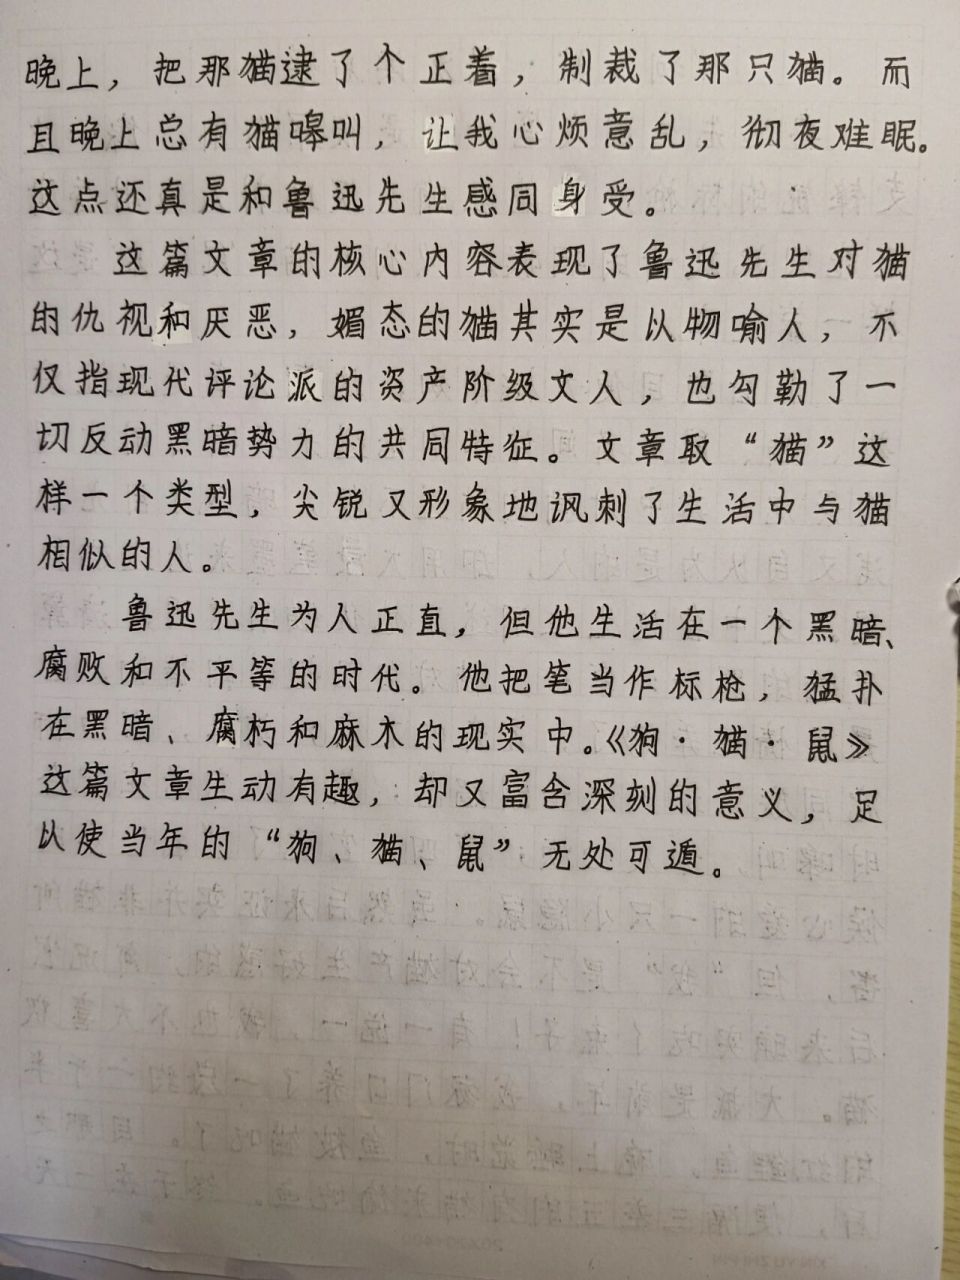 晚上，把那猫逮了个正着，制裁了那只猫。而
且晚上总有猫嗥叫，让我心烦意乱，彻夜难眠。
这点还真是和鲁迅先生感同身受。
这篇文章的核心内容表现了鲁迅先生对猫
的仇视和厌恶，媚态的猫其实是以物喻人，不
仅指现代评论派的资产阶级文人，也勾勒了一
切反动黑暗势力的共同特征。文章取“猫”这
样一个类型，尖锐又形象地讽刺了生活中与猫
相似的人。
鲁迅先生为人正直，但他生活在一个黑暗、
腐败和不平等的时代。他把笔当作标枪，猛扑
在黑暗、腐朽和麻木的现实中。《狗·猫·鼠》
这篇文章生动有趣，却又富含深刻的意义，足
以使当年的“狗、猫、鼠”无处可遁。